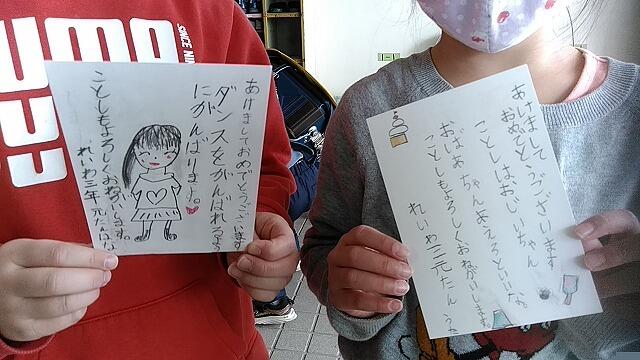 あけましておめでとうございます
ダンスをがんばれるよう
にがんばります。
ことしもよろしくおねがいします。
れいわ三年 元たん
あけまして
おめでとうございます
ことしはおじいちゃん
おばあちゃんあえるといいな
ことしもよろしくおねがいします
れいわ三元たん
SINCE